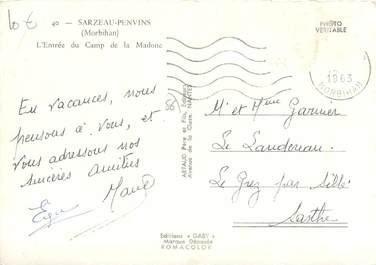 10 €
49 - SARZEAU-PENVINS
(Morbihan)
L'Entrée du Camp de la Madone
PHOTO
VÉRITABLE
1963
MORBIHAN
En vacances, nous
pensons à vous, et
vous adressons nos
sincères amitiés
86
ARTAUD Père et Fils, Éditeurs
Avenue de la Close, NANTES
Mr et Mme Garnier
Le Landereau
Le Grez par Sillé
Sarthe
Editions « GABY »
Marque Déposée
ROMACOLOR